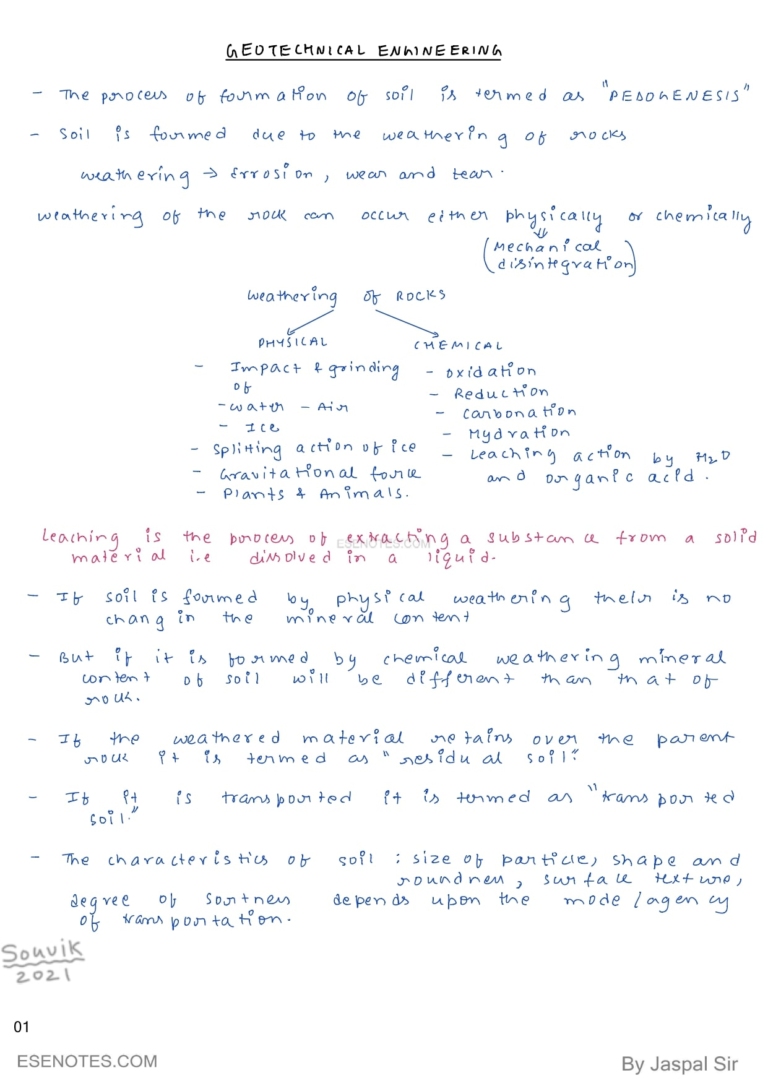 GEOTECHNICAL ENGINEERING
- The process of formation of soil is termed as "PEDOGENESIS"
- Soil is formed due to the weathering of rocks
weathering → Errosion, wear and tear.
weathering of the rock can occur either physically or chemically
⇓
(Mechanical
disintegration)
Weathering of ROCKS
PHYSICAL
- Impact & grinding
of
- water - Air
- Ice
- Splitting action of ice
- Gravitational force
- Plants & Animals.
CHEMICAL
- Oxidation
- Reduction
- Carbonation
- Hydration
- Leaching action by H2O
and organic acid.
Leaching is the process of extracting a substance from a solid
material i.e dissolved in a liquid.
ESENOTES.COM
- If soil is formed by physical weathering their is no
chang in the mineral content
- But if it is formed by chemical weathering mineral
content of soil will be different than that of
rock.
- If the weathered material retains over the parent
rock it is termed as "residual soil."
- If it is transported it is termed as "transported
soil."
- The characteristics of soil : size of particle, shape and
roundness, surface texture,
degree of sortness depends upon the mode/agency
of transportation.
Souvik
2021
01
ESENOTES.COM
By Jaspal Sir